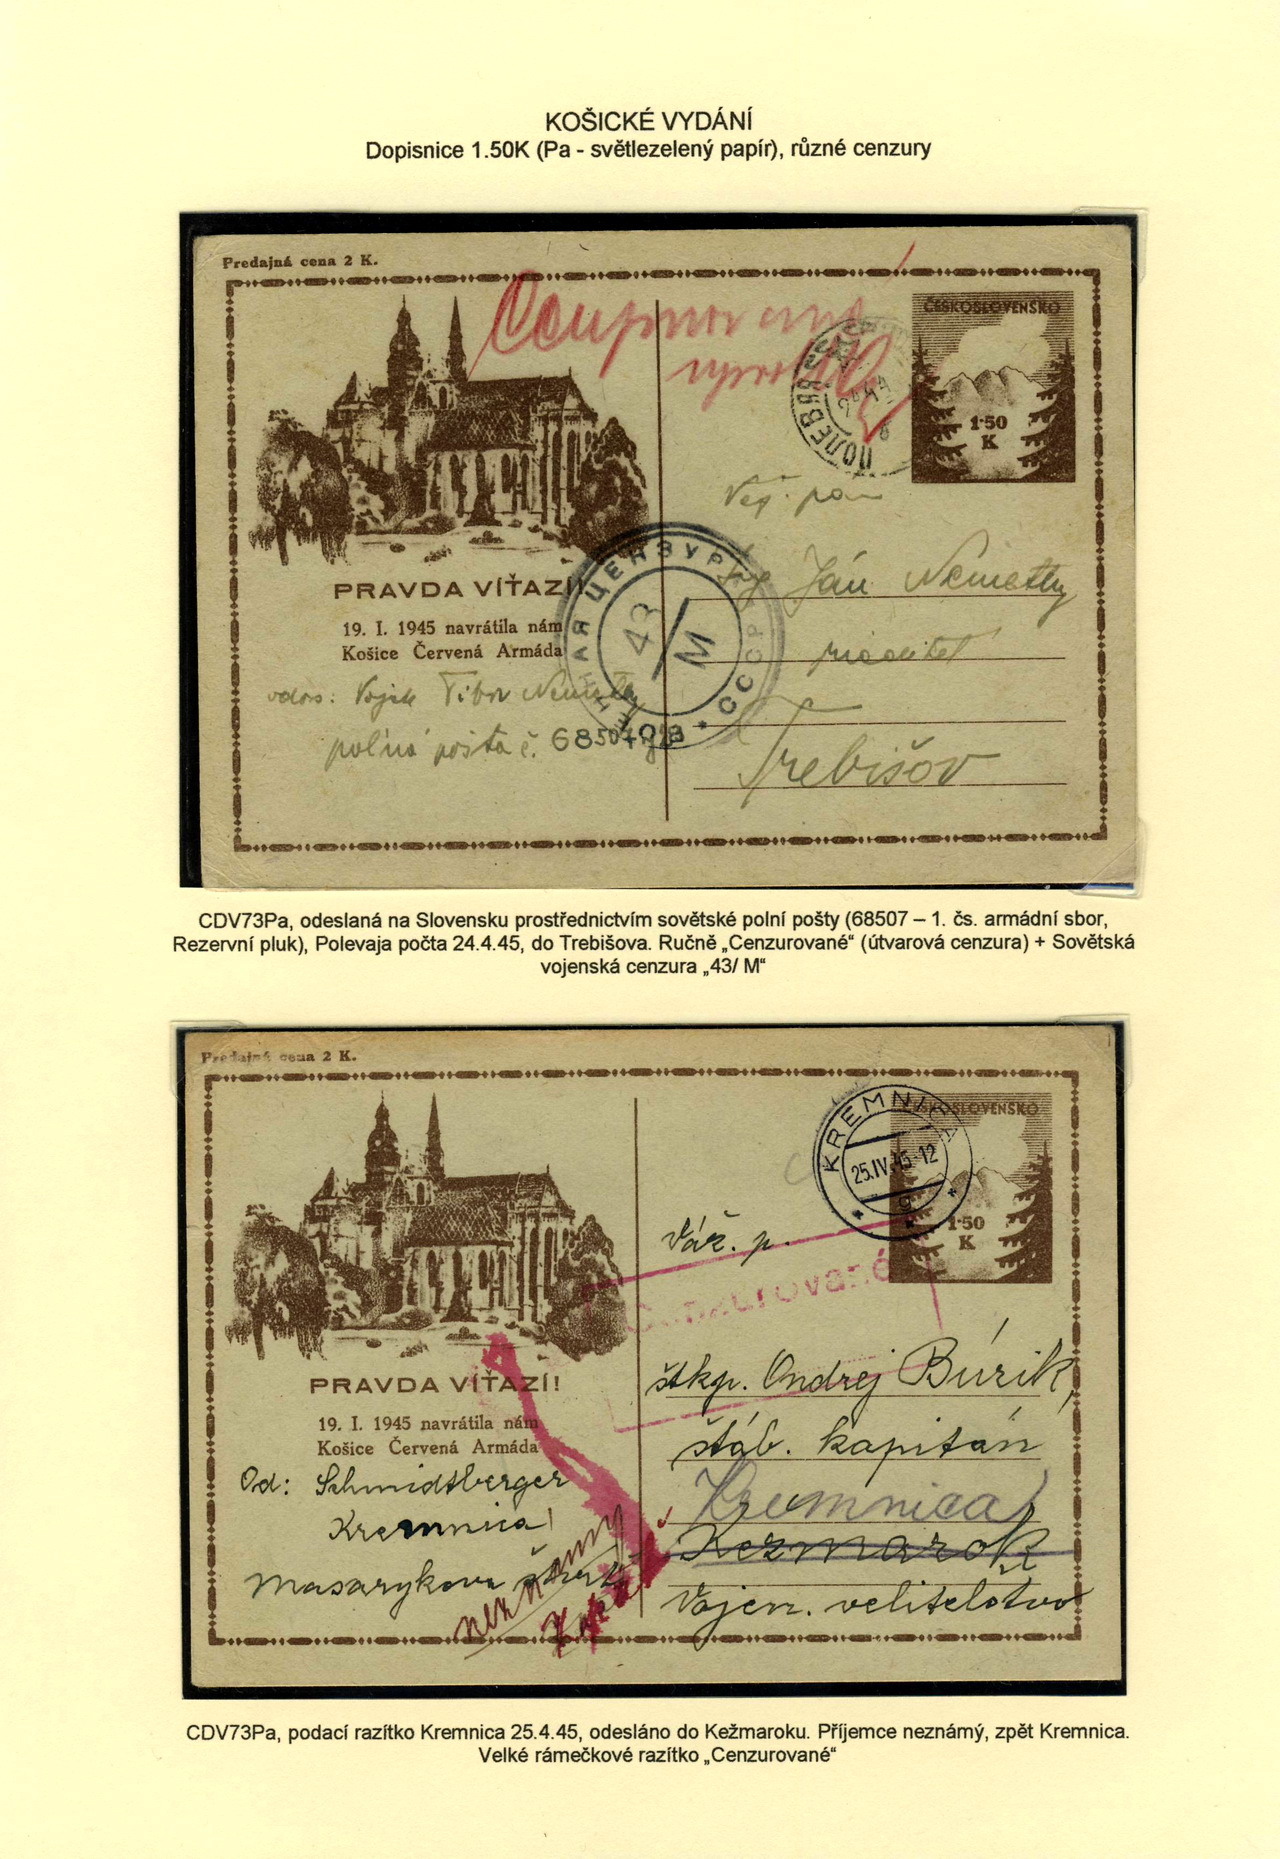 KOŠICKÉ VYDÁNÍ
Dopisnice 1.50K (Pa - světlezelený papír), různé cenzury
Predajná cena 2 K.
ČESKOSLOVENSKO
1·50
K
ПОЛЕВАЯ
24 4
Ján
Trebišov
PRAVDA VÍŤAZÍ!
19. I. 1945 navrátila nám
Košice Červená Armáda
ЦЕНЗУРА
СССР
43
M
poľná pošta č. 68504
CDV73Pa, odeslaná na Slovensku prostřednictvím sovětské polní pošty (68507 – 1. čs. armádní sbor,
Rezervní pluk), Polevaja počta 24.4.45, do Trebišova. Ručně „Cenzurované“ (útvarová cenzura) + Sovětská
vojenská cenzura „43/ M“
Predajná cena 2 K.
KREMNICA
25.IV.45-12
g
ČESKOSLOVENSKO
1·50
K
Váž. p.
Cenzurované
štkp. Ondrej Búrik,
štáb. kapitán
Kremnica
Kežmarok
Vojen. veliteľstvo
PRAVDA VÍŤAZÍ!
19. I. 1945 navrátila nám
Košice Červená Armáda
Od: Schmidtberger
Kremnica
Masarykova
neznámy
CDV73Pa, podací razítko Kremnica 25.4.45, odesláno do Kežmaroku. Příjemce neznámý, zpět Kremnica.
Velké rámečkové razítko „Cenzurované“